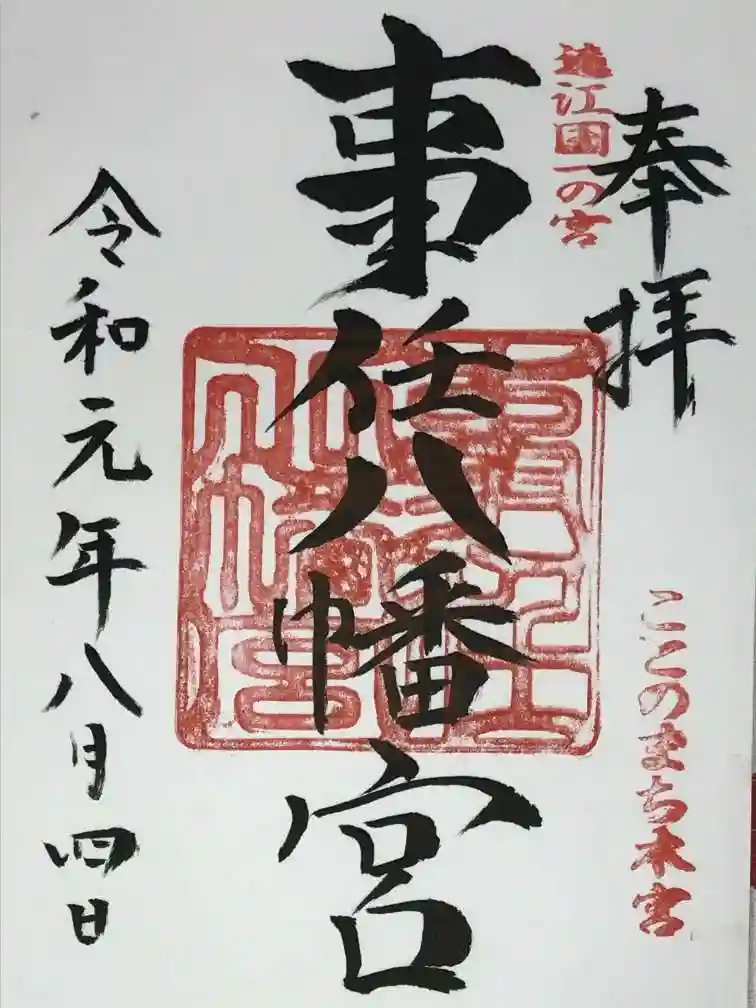 奉拝
ことのまま本宮
遠江国一の宮
事任八幡宮
令和元年八月四日